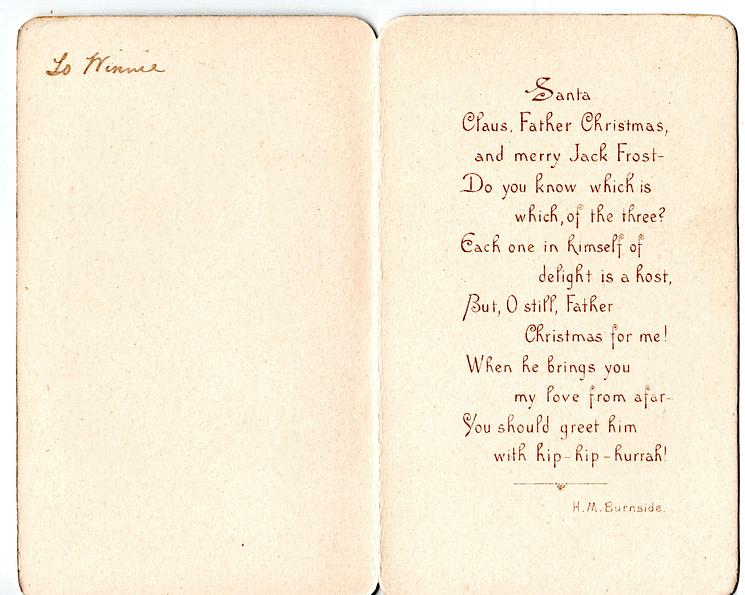 To Winnie
Santa
Claus, Father Christmas,
and merry Jack Frost-
Do you know which is
which, of the three?
Each one in himself of
delight is a host,
But, O still, Father
Christmas for me!
When he brings you
my love from afar-
You should greet him
with hip-hip-hurrah!
H.M.Burnside.